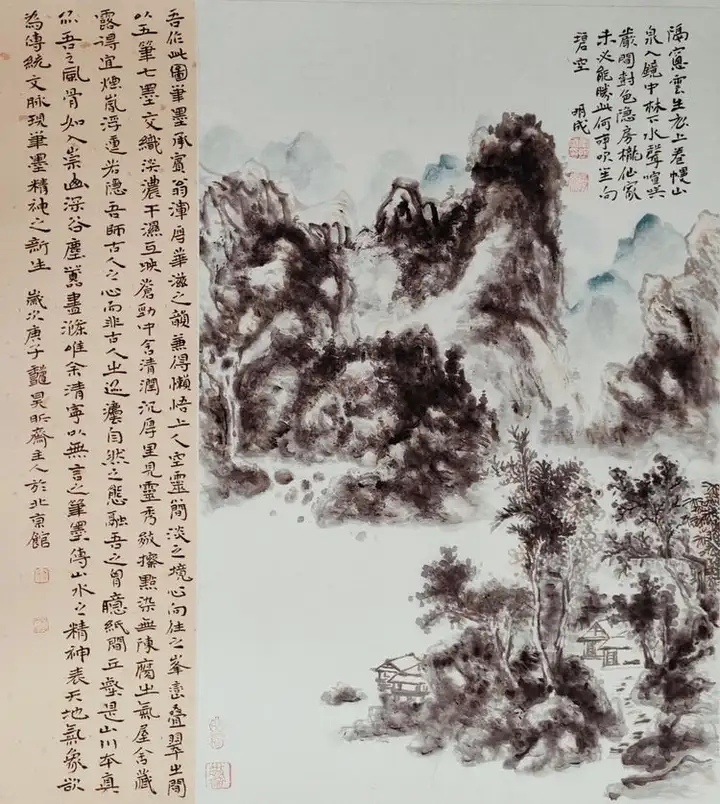 隔窗雲生衣上卷幔山
泉入鏡中林下水聲喧笑
巖間樹色隱房櫳仙家
未必能勝此何事吹笙向
碧空 明成
吾作此圖筆墨承賓翁渾厚華滋之韻兼得懶悟上人空靈簡淡之境心向往之峯巒疊翠之間
以五筆七墨交織淡濃干濕互映蒼勁中含清潤沉厚里見靈秀皴擦點染無陳腐之氣屋舍藏
露得宜煙嵐浮運若隱吾師古人之心而非古人之迹自然之態融吾之胸臆紙間丘壑是山川本真
亦吾之風骨如入崇幽深谷塵囂盡滌唯余清寧以無言之筆墨傳山水之精神表天地氣象欲
為傳統文脈現筆墨精神之新生 歲次庚子昊昕齋主人於北京館